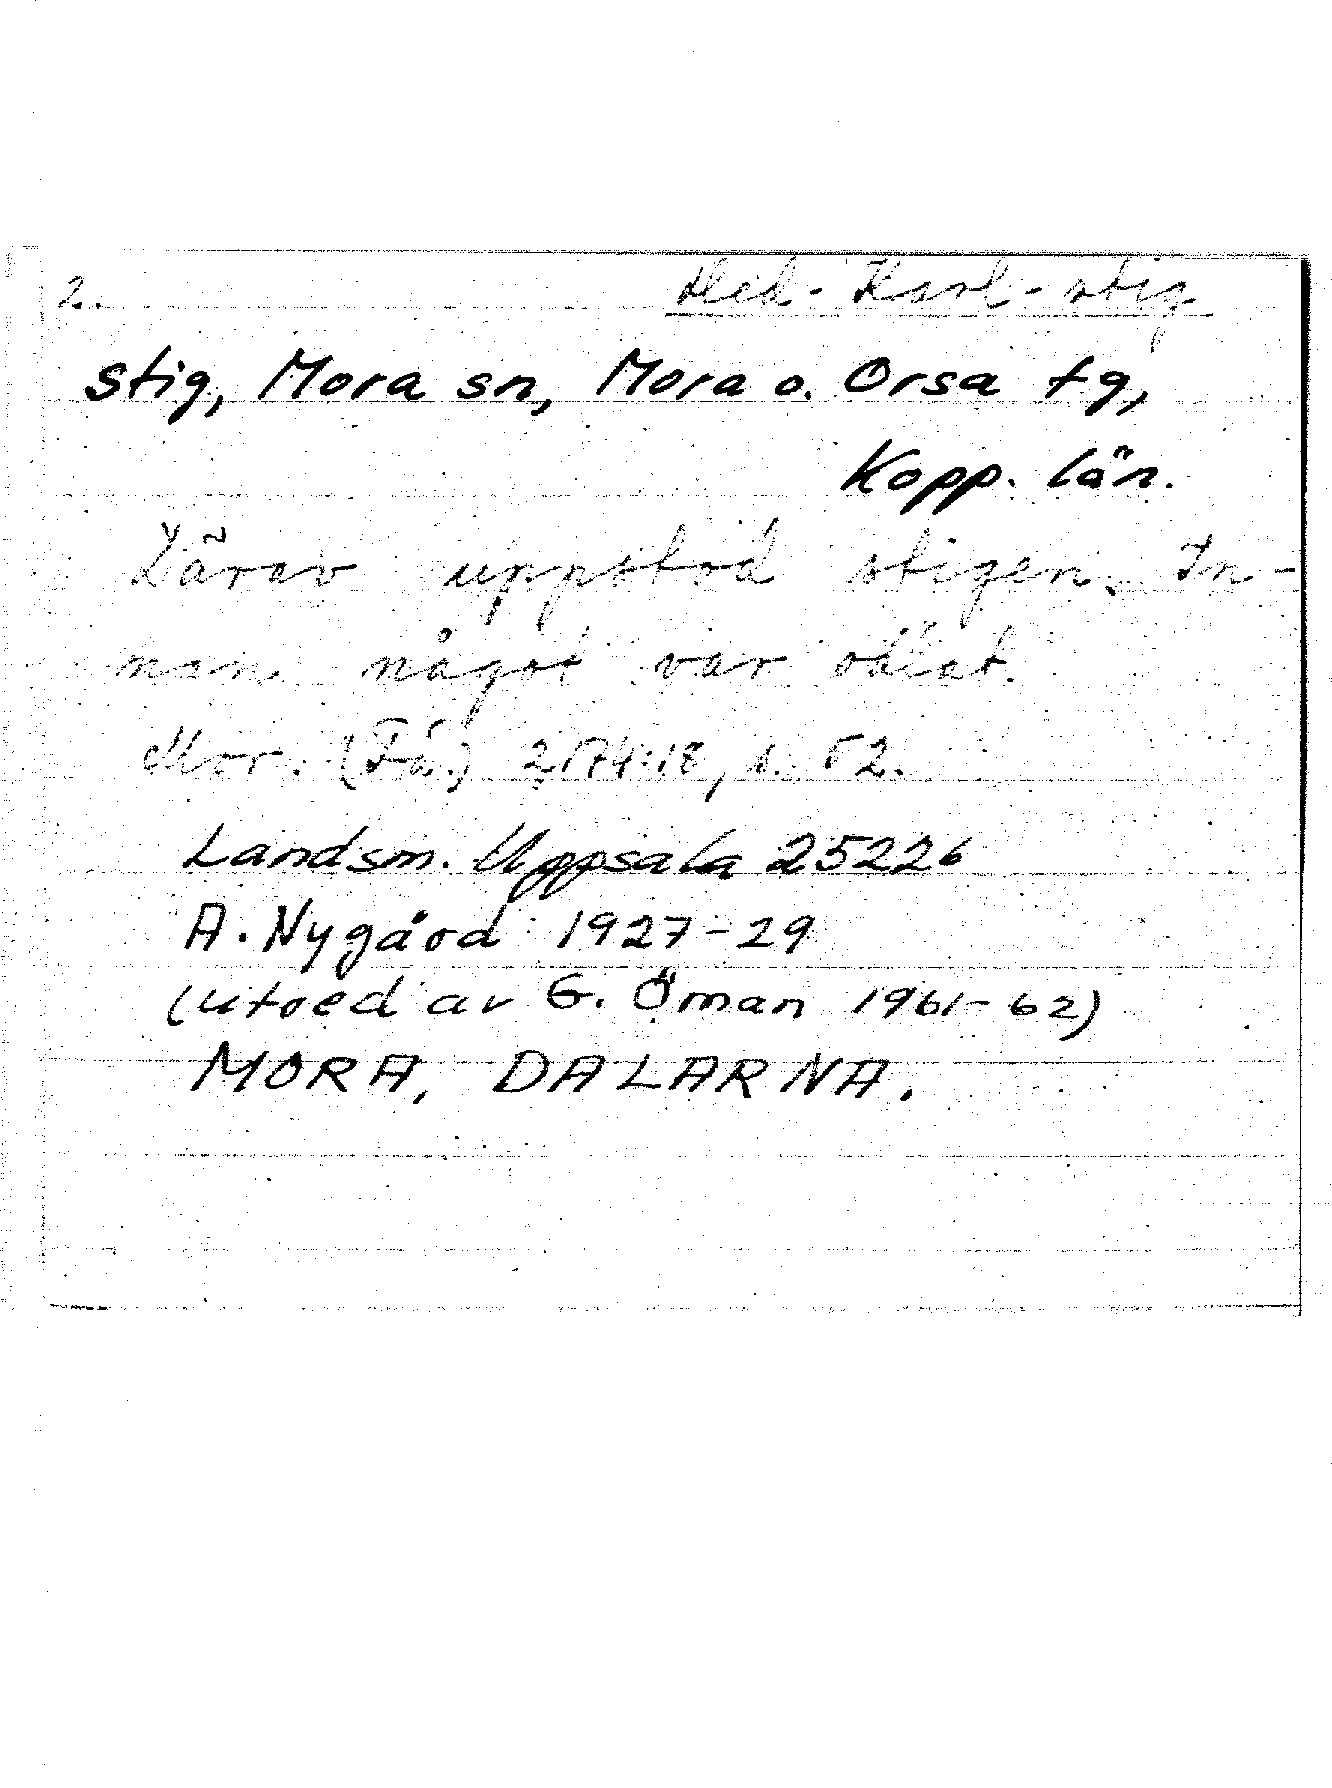 2. Hed-Karl-stig
stig, Mora sn, Mora o. Orsa tg,
Kopp. län.
Därav uppstod stigen. In-
nan något var odlat.
Mor. (Få) 2174:18, s. 52.
Landsm. Uppsala 25226
A. Nygård 1927-29
(utred av G. Öman 1961-62)
MORA, DALARNA.